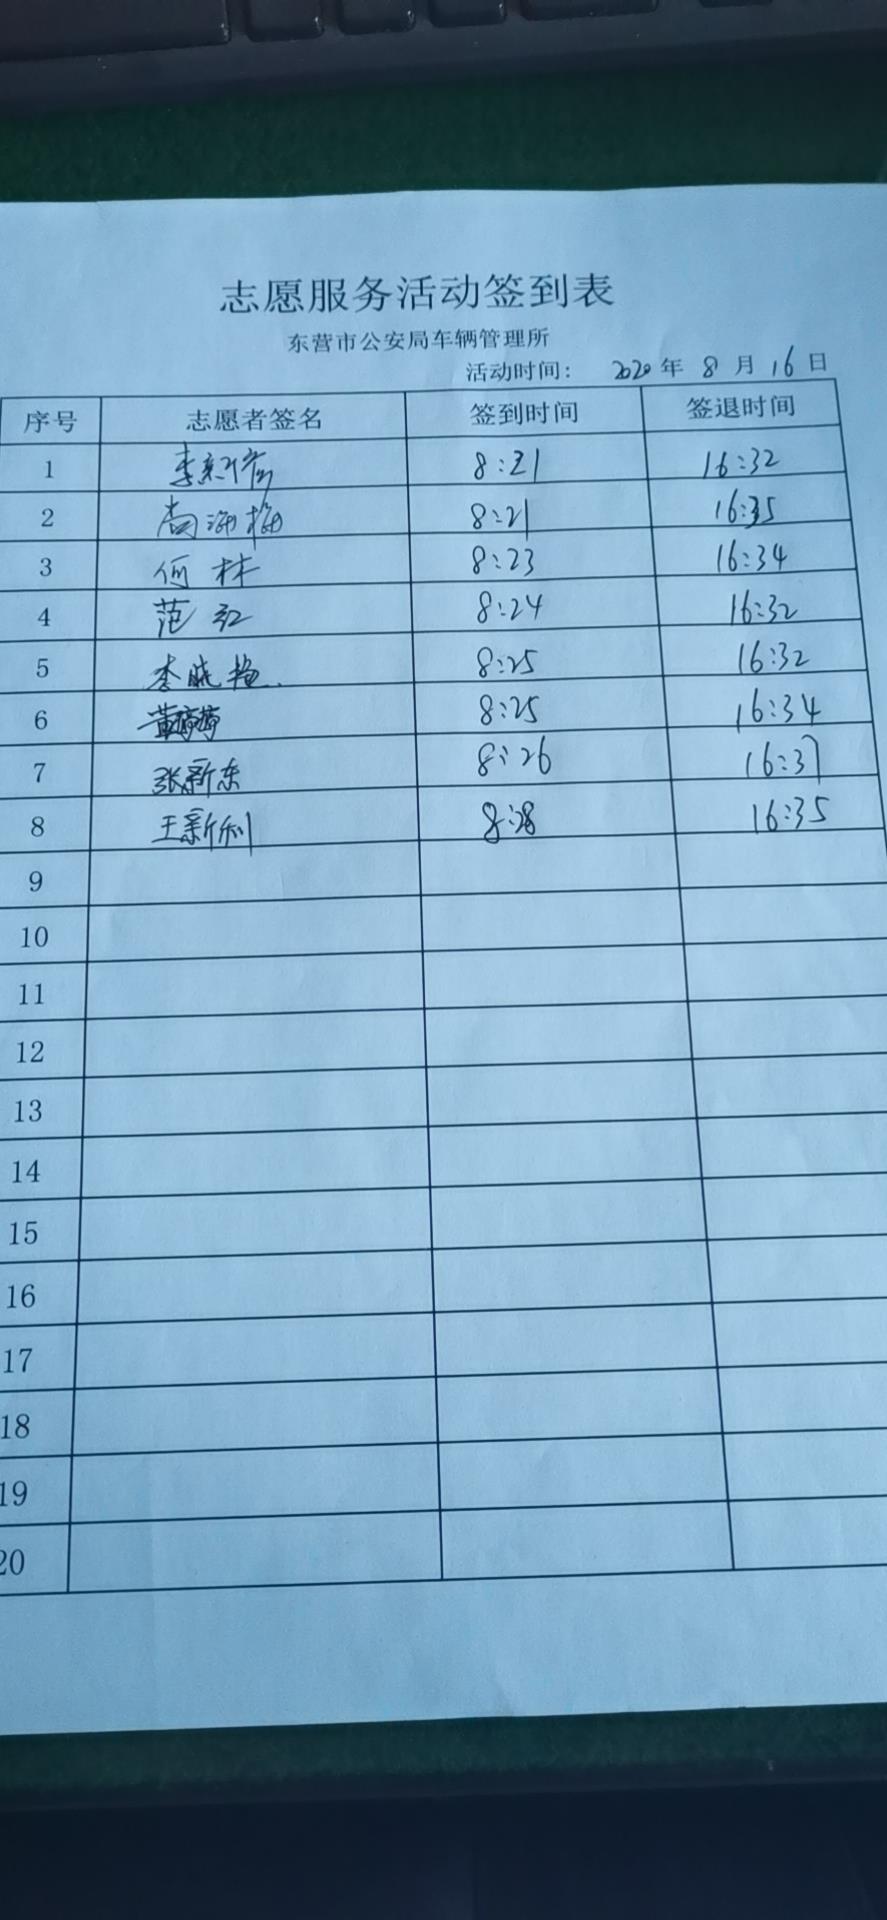 志愿服务活动签到表
东营市公安局车辆管理所
活动时间： 2020 年 8 月 16 日
序号 志愿者签名 签到时间 签退时间
1 李 8:21 16:32
2 尚海梅 8:21 16:35
3 何林 8:23 16:34
4 范红 8:24 16:32
5 李晓艳 8:25 16:32
6 黄婷婷 8:25 16:34
7 张新东 8:26 16:37
8 王新利 8:28 16:35
9
10
11
12
13
14
15
16
17
18
19
20